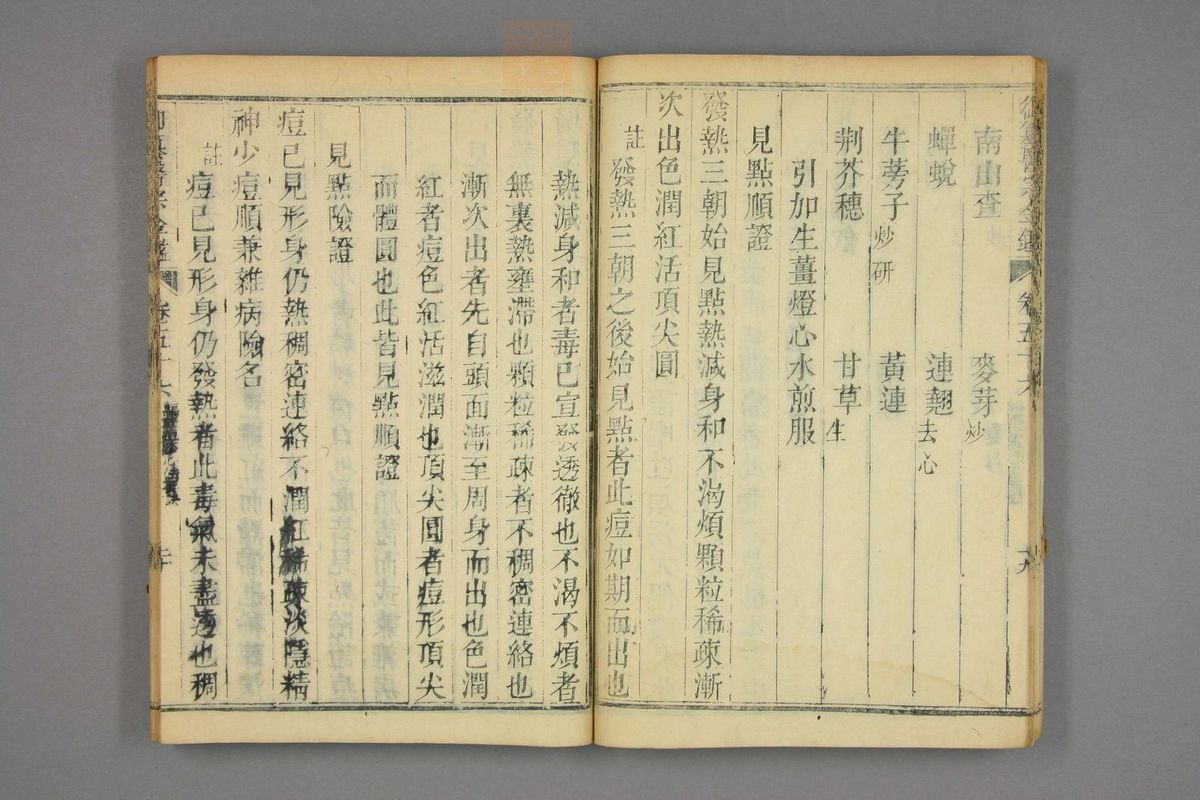 南山查 麥芽炒
蟬蛻 連翹去心
牛蒡子炒研 黃連
荆芥穗 甘草生
引加生薑燈心水煎服
見點順證
發熱三朝始見點熱減身和不渴煩顆粒稀疎漸
次出色潤紅活頂尖圓
註發熱三朝之後始見點者此痘如期而出也
熱減身和者毒已宣發透徹也不渴不煩者
無裏熱壅滯也顆粒稀疎者不稠密連絡也
漸次出者先自頭面漸至周身而出也色潤
紅者痘色紅活滋潤也頂尖圓者痘形頂尖
而體圓也此皆見點順證
見點險證
痘已見形身仍熱稠密連絡不潤紅稀疎淡隱精
神少痘順兼雜病險名
註痘已見形身仍發熱者此毒氣未盡透也稠